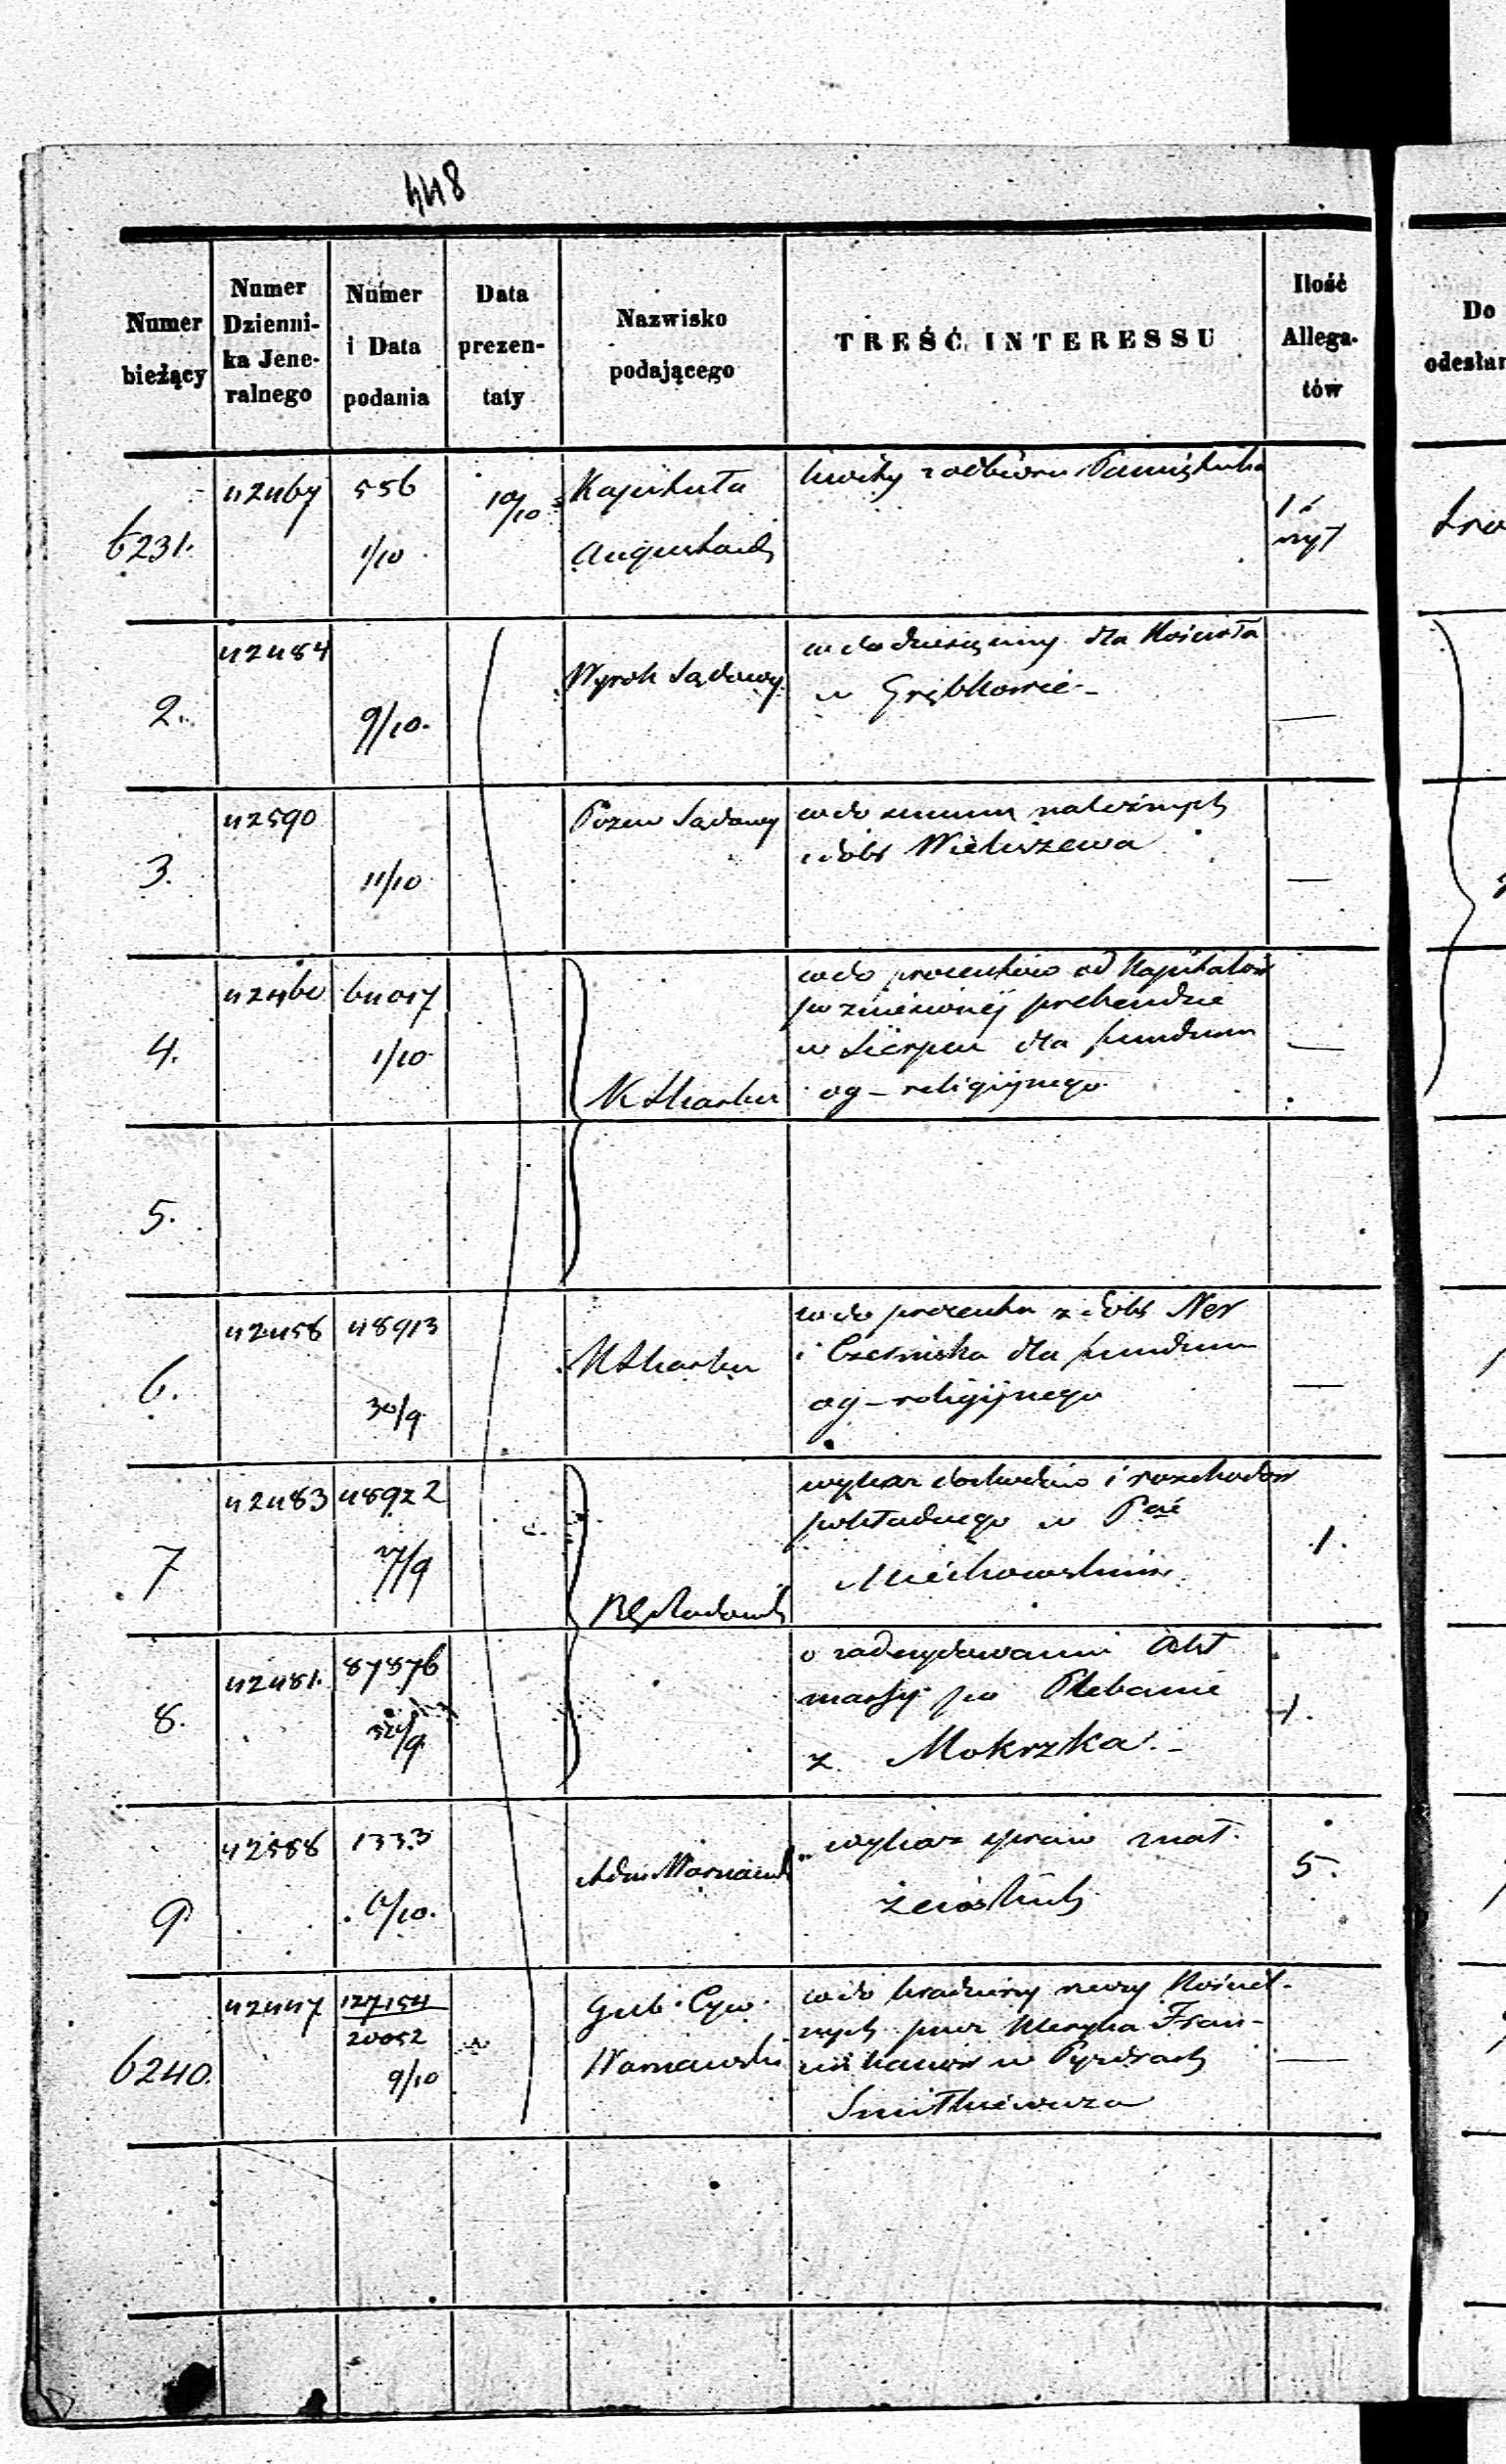 448
Numer
bieżący
Numer
Dzienni-
ka Jene-
ralnego
Numer
i Data
podania
Data
prezen-
taty
Nazwisko
podającego
TREŚĆ INTERESSU
Ilość
Allega-
tów
Do
odesłan
6231.
42467
556
1/10
10/10
Kapituła
Augustowsk
kwity z odbioru Pamiętnika
2.
42484
9/10.
Wyrok Sądowy
wdo dziesięciny dla Kościoła
w Grębkowie -
3.
42590
11/10
Pozew Sądowy
wdo summ należnych
z dóbr Wieluszewa
4.
64017
1/10
K Skarbu
wdo procentów od Kapitałów
po zniesionej prebendzie
w Sierpcu dla funduszu
og - religijnego
5.
6.
42458
48913
30/9
K Skarbu
wdo procentu z dóbr Ner
i dla funduszu
og - religijnego
7
42483
48922
27/9
RG Radomsk
wykaz dochodów i rozchodów
pokładnego w Pcie
Miechowskim
1.
8.
42481.
87876
/9
o zadecydowanie Akt
massy po Plebanie
z Mokrzka. -
1.
9
42588
1333
/10.
Adm Warszawsk
wykaz spraw mał.
żeńskich
5.
6240.
42447
127154
20052
9/10
Gub. Cyw.
Warszawski
wdo kradzieży rzeczy Kościel-
nych przez Kleryka Fran-
ciszkanów w Pyzdrach
Smitkiewicza